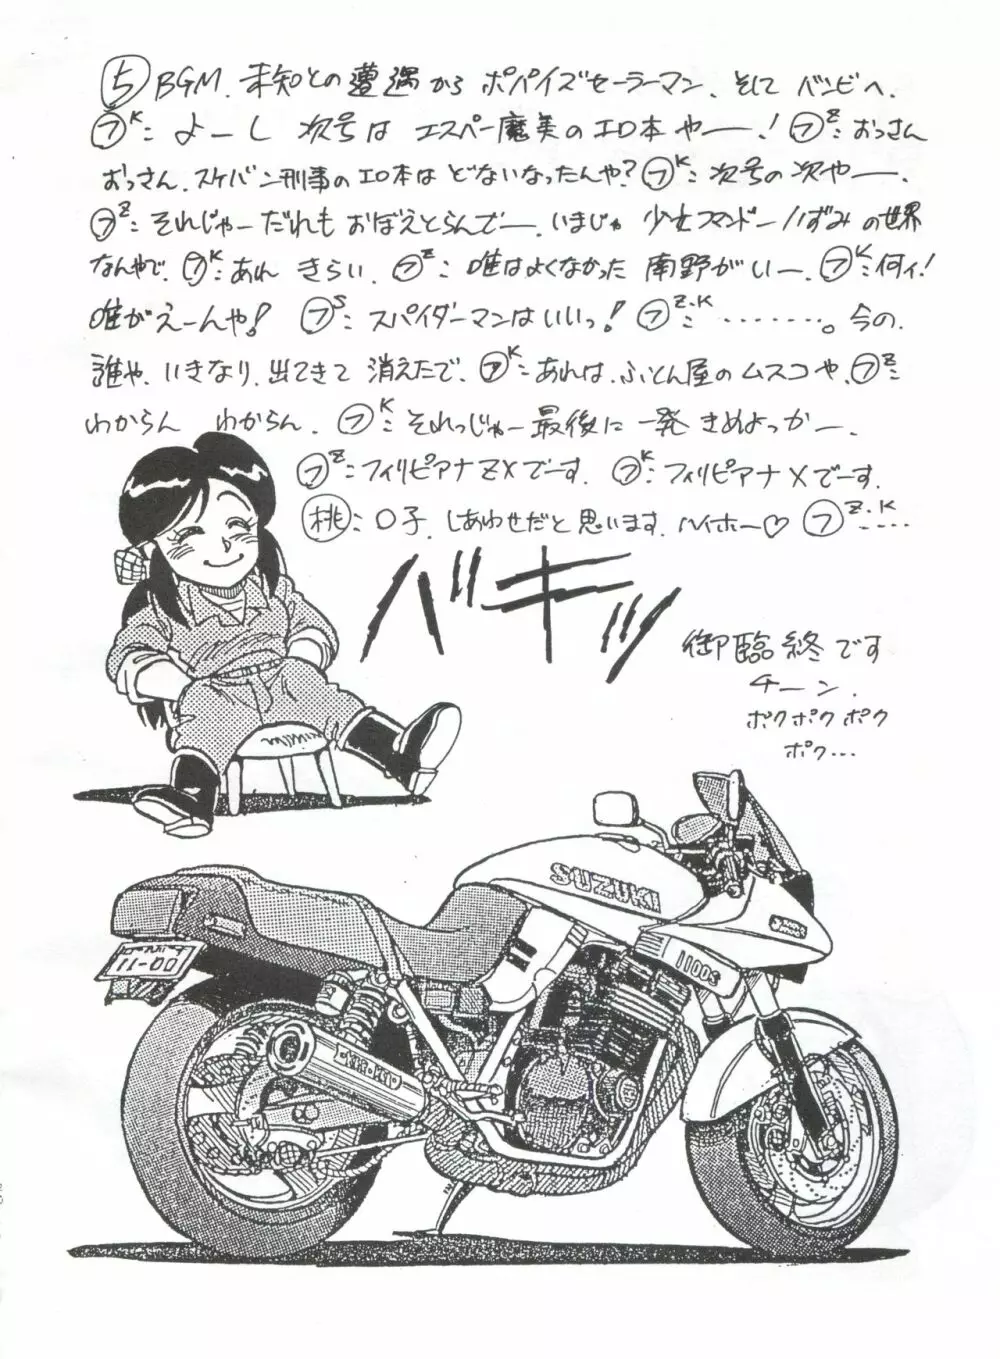 ⑤BGM. 未知との遭遇から ポパイズセーラーマン、そして バンビへ.
㋫K:よーし 次号は エスパー魔美のエロ本やー! ㋫Z:おっさん
おっさん.スケバン刑事のエロ本は どないなったんや?㋫K:次号の次やー.
㋫Z:それじゃーだれも おぼえとらんでー.いまじゃ 少女コマンドーいずみ の世界
なんやで. ㋫K:あれ きらい. ㋫Z:唯はよくなかった 南野がいー. ㋫K:何ィ!
唯がえーんや! ㋫S:スパイダーマンはいいっ! ㋫Z.K:‥‥‥‥。今の.
誰や.いきなり.出てきて 消えたで. ㋫K:あれは.ふとん屋のムスコや. ㋫Z:
わからん わからん. ㋫K:それっじゃー最後に 一発 きめよっかー.
㋫Z:フィリピアナZXでーす. ㋫K:フィリピアナXでーす.
桃:○子. しあわせだと思います.ハイホー♡ ㋫Z.K‥‥
バキッ
御臨終です
チーン.
ポクポクポク
ポク…
SUZUKI
1100S
00-11